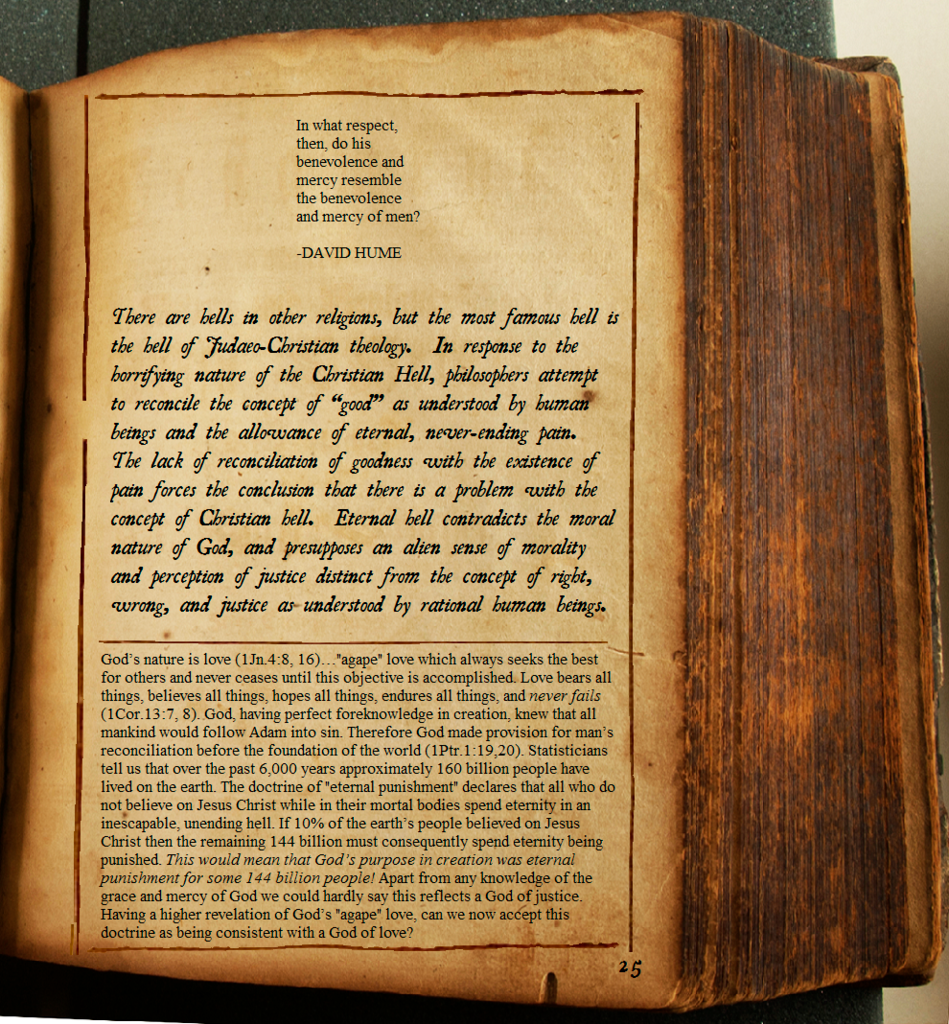 In what respect,
then, do his
benevolence and
mercy resemble
the benevolence
and mercy of men?
-DAVID HUME
There are hells in other religions, but the most famous hell is
the hell of Judaeo-Christian theology. In response to the
horrifying nature of the Christian Hell, philosophers attempt
to reconcile the concept of “good” as understood by human
beings and the allowance of eternal, never-ending pain.
The lack of reconciliation of goodness with the existence of
pain forces the conclusion that there is a problem with the
concept of Christian hell. Eternal hell contradicts the moral
nature of God, and presupposes an alien sense of morality
and perception of justice distinct from the concept of right,
wrong, and justice as understood by rational human beings.
God's nature is love (1Jn.4:8, 16)…"agape" love which always seeks the best
for others and never ceases until this objective is accomplished. Love bears all
things, believes all things, hopes all things, endures all things, and never fails
(1Cor.13:7, 8). God, having perfect foreknowledge in creation, knew that all
mankind would follow Adam into sin. Therefore God made provision for man's
reconciliation before the foundation of the world (1Ptr.1:19,20). Statisticians
tell us that over the past 6,000 years approximately 160 billion people have
lived on the earth. The doctrine of "eternal punishment" declares that all who do
not believe on Jesus Christ while in their mortal bodies spend eternity in an
inescapable, unending hell. If 10% of the earth's people believed on Jesus
Christ then the remaining 144 billion must consequently spend eternity being
punished. This would mean that God's purpose in creation was eternal
punishment for some 144 billion people! Apart from any knowledge of the
grace and mercy of God we could hardly say this reflects a God of justice.
Having a higher revelation of God's "agape" love, can we now accept this
doctrine as being consistent with a God of love?
25